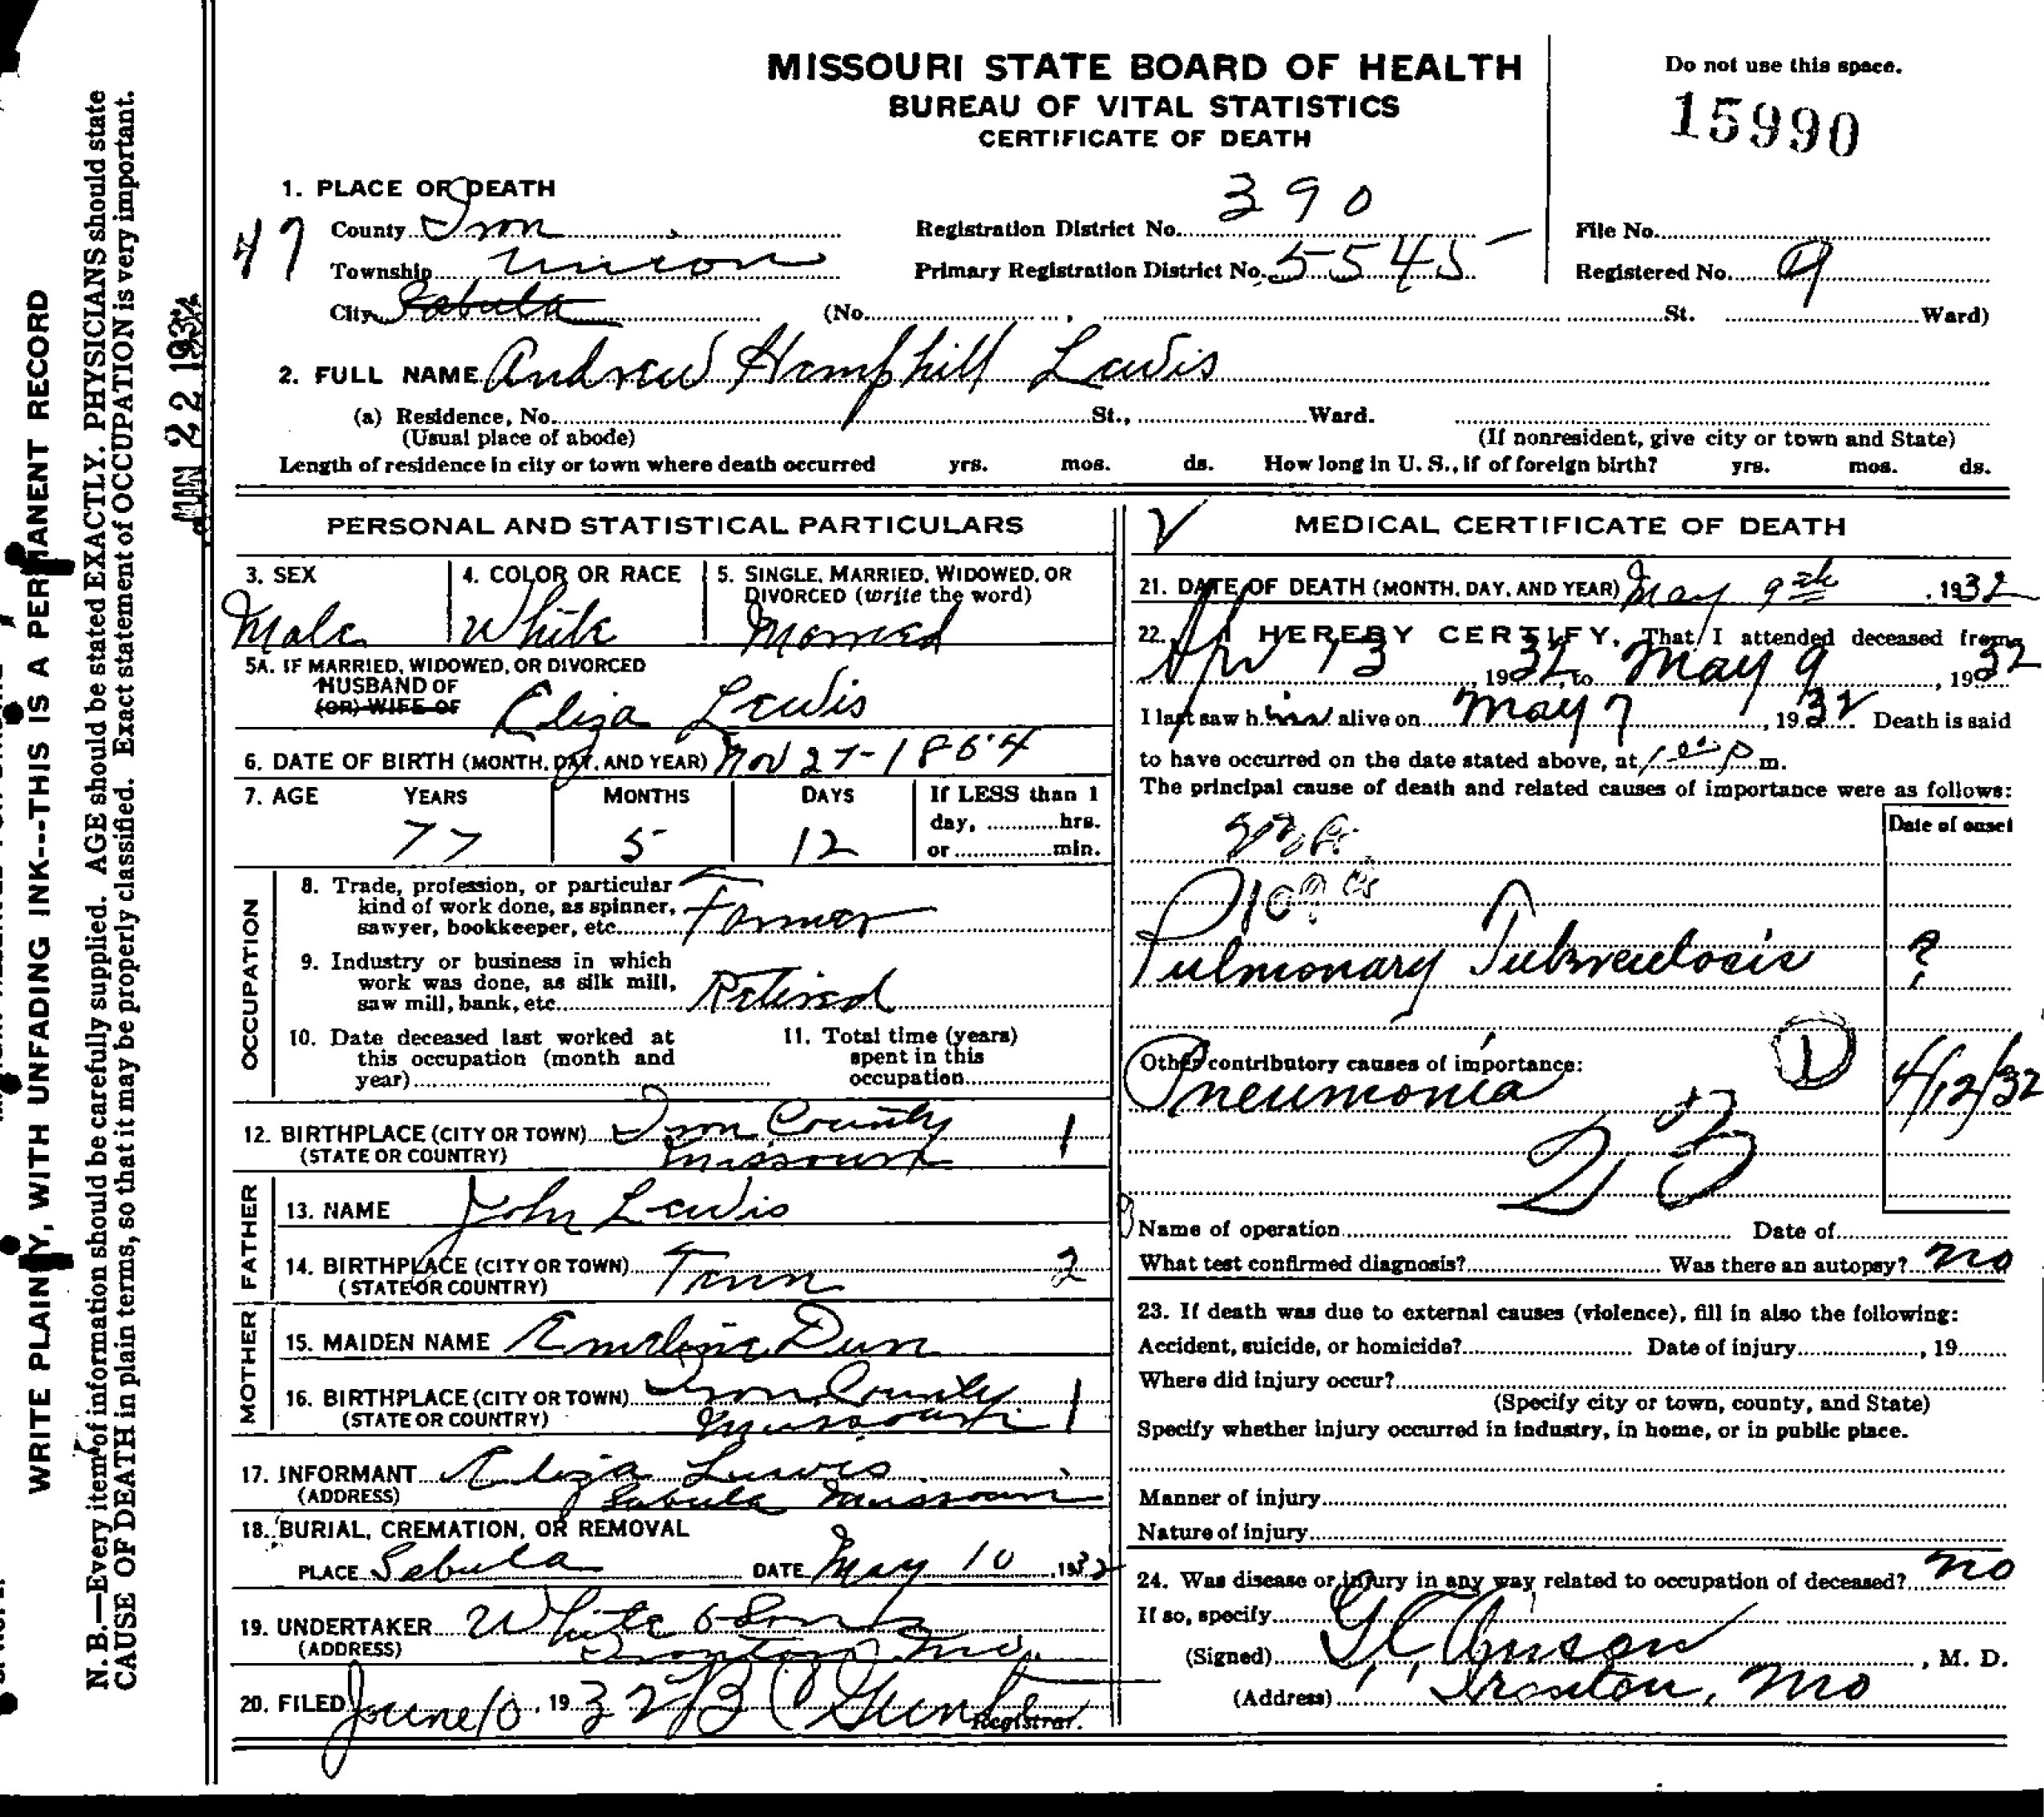 MISSOURI STATE BOARD OF HEALTH
BUREAU OF VITAL STATISTICS
CERTIFICATE OF DEATH
Do not use this space.
15990
1. PLACE OF DEATH
47
County Iron Registration District No. 390 File No.
Township Union Primary Registration District No. 5545 Registered No. 9
City Sabula (No. , St. Ward)
2. FULL NAME Andrew Hemphill Lewis
(a) Residence, No. St., Ward.
(Usual place of abode) (If nonresident, give city or town and State)
Length of residence in city or town where death occurred yrs. mos. ds. How long in U. S., if of foreign birth? yrs. mos. ds.
PERSONAL AND STATISTICAL PARTICULARS
3. SEX 4. COLOR OR RACE 5. SINGLE, MARRIED, WIDOWED, OR DIVORCED (write the word)
Male White Married
5A. IF MARRIED, WIDOWED, OR DIVORCED
HUSBAND OF
(OR) WIFE OF Eliza Lewis
6. DATE OF BIRTH (MONTH, DAY, AND YEAR) Nov 27-1854
7. AGE YEARS MONTHS DAYS If LESS than 1
day, hrs.
77 5 12 or min.
OCCUPATION
8. Trade, profession, or particular
kind of work done, as spinner,
sawyer, bookkeeper, etc. Farmer
9. Industry or business in which
work was done, as silk mill,
saw mill, bank, etc. Retired
10. Date deceased last worked at
this occupation (month and
year)
11. Total time (years)
spent in this
occupation
12. BIRTHPLACE (CITY OR TOWN) Iron County 1
(STATE OR COUNTRY) Missouri
FATHER
13. NAME John Lewis
14. BIRTHPLACE (CITY OR TOWN) Tenn 2
(STATE OR COUNTRY)
MOTHER
15. MAIDEN NAME Emeline Dun
16. BIRTHPLACE (CITY OR TOWN) Iron County
(STATE OR COUNTRY) Missouri 1
17. INFORMANT Eliza Lewis
(ADDRESS) Sabula Missouri
18. BURIAL, CREMATION, OR REMOVAL
PLACE Sabula DATE May 10, 1932
19. UNDERTAKER White & Sons
(ADDRESS) Ironton Mo.
20. FILED June 10, 1932
Registrar.
MEDICAL CERTIFICATE OF DEATH
21. DATE OF DEATH (MONTH, DAY, AND YEAR) May 9th, 1932
22. I HEREBY CERTIFY, That I attended deceased from
Apr 13, 1932, to May 9, 1932
I last saw him alive on May 7, 1932. Death is said
to have occurred on the date stated above, at 1:00 P m.
The principal cause of death and related causes of importance were as follows:
Date of onset
Pulmonary Tuberculosis ?
Other contributory causes of importance:
Pneumonia 4/12/32
23
Name of operation Date of
What test confirmed diagnosis? Was there an autopsy? No
23. If death was due to external causes (violence), fill in also the following:
Accident, suicide, or homicide? Date of injury , 19
Where did injury occur?
(Specify city or town, county, and State)
Specify whether injury occurred in industry, in home, or in public place.
Manner of injury
Nature of injury
24. Was disease or injury in any way related to occupation of deceased? No
If so, specify
(Signed) , M. D.
(Address) Ironton, Mo
WRITE PLAINLY, WITH UNFADING INK---THIS IS A PERMANENT RECORD
N. B.—Every item of information should be carefully supplied. AGE should be stated EXACTLY. PHYSICIANS should state
CAUSE OF DEATH in plain terms, so that it may be properly classified. Exact statement of OCCUPATION is very important.
JUN 22 1932